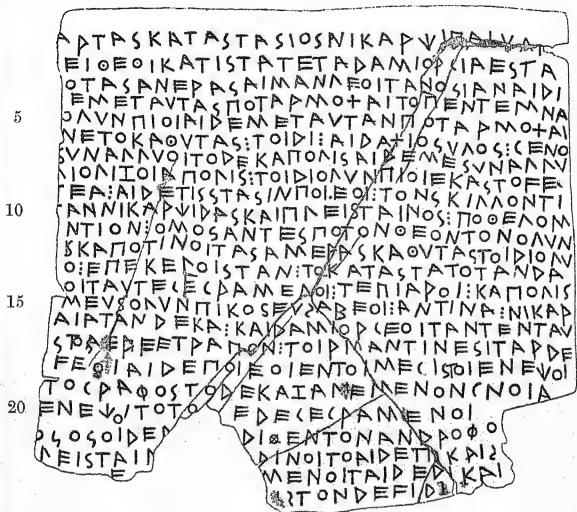 ΑΡΤΑΣΚΑΤΑΣΤΑΣΙΟΣΝΙΚΑΡΨΙ
ΕΙΟΘΕΟΙΚΑΤΙΣΤΑΤΕΤΑΔΑΜΙΟΡΓΙΑΕΣΤΑ
ΟΤΑΣΑΝΕΡΑΣΑΙΜΑΝΛΕΟΙΤΑΝΟΣΙΑΝΑΙΔΙ
ΕΜΕΤΑΥΤΑΣΠΟΤΑΡΜΟ+ΑΙΤΟΠΕΝΤΕΜΝΑ
5 ΟΛΥΝΠΙΟΙΑΙΔΕΜΕΤΑΥΤΑΝΠΟΤΑΡΜΟ+ΑΙ
ΝΕΤΟΚΑΘΥΤΑΣ:ΤΟΙΔΙ:ΑΙΔΑΤΙΟΣΥΛΟΣ:ΓΕΝΟ
ΣΥΝΑΛΛΥΟΙΤΟΔΕΚΑΠΟΛΙΣΑΙΔΕΜΕΣΥΝΑΛΛΥ
ΛΙΟΛΙΞΟΙΑΠΟΛΙΣ:ΤΟΙΔΙΟΛΥΝΠΙΟΙΕΚΑΣΤΟϜΕ
ΤΕΑ:ΑΙΔΕΤΙΣΣΤΑΣΙΝΠΟΙΕΟΙ:ΤΟΝΣΚΙΛΛΟΝΤΙ
10 ΑΝΝΙΚΑΡΨΙΔΑΣΚΑΙΠΛΕΙΣΤΑΙΝΟΣ:ΠΟΘΕΛΟΜ
ΝΤΙΟΝ:ΟΜΟΣΑΝΤΕΣΠΟΤΟΝΘΕΟΝΤΟΝΟΛΥΝ
ΚΑΠΟΤΙΝΟΙΤΑΣΑΜΕΡΑΣΚΑΘΥΤΑΣΤΟΙΔΙΟΛΥ
Ο:ΕΠΕΚΕΡΟΙΣΤΑΝ:ΤΟΚΑΤΑΣΤΑΤΟΤΑΝΔΑ
ΟΙΤΑΥΤΕΓΕΓΡΑΜΕΝΟΙ:ΤΕΠΙΑΡΟΙ:ΚΑΠΟΛΙΣ
15 ΜΕΥΣΟΛΥΝΠΙΚΟΣΕΥΣΑΒΕΟΙ:ΑΝΤΙΝΑ:ΝΙΚΑΡ
ΑΙΑΤΑΝΔΕΚΑ:ΚΑΙΔΑΜΙΟΡΓΕΟΙΤΑΝΤΕΝΤΑΥ
ΣΤΟΑΕΒΕΕΤΡΑΠΟΝ:ΤΟΙΡΜΑΝΤΙΕΣΙΤΑΡΔΕ
ϜΕΘΙΑΙΔΕΠΟΙΕΟΙΕΝΤΟΙΜΕΓΙΣΤΟΙΕΝΕΨΟΙ
ΤΟΓΡΑΦΟΣΤΟΔΕΚΑΙΑΜΕΙΜΕΝΟΝΓΝΟΙΑ
20 ΕΝΕΨΟΙΤΟΤΟ ΕΔΕΓΕΓΡΑΜΕΝΟΙ
ΟΣΟΣΟΙΔΕΝ ΔΙΘΕΝΤΟΝΑΝΔΡΟΦΟ
ΛΕΙΣΤΑΙΝ ΔΙΝΟΙΤΟΑΙΔΕΤΙΚΑΙΣ
ΜΕΝΟΙΤΑΙΔΕΚΑΙ
ΣΤΟΝΔΕϜΙΔ